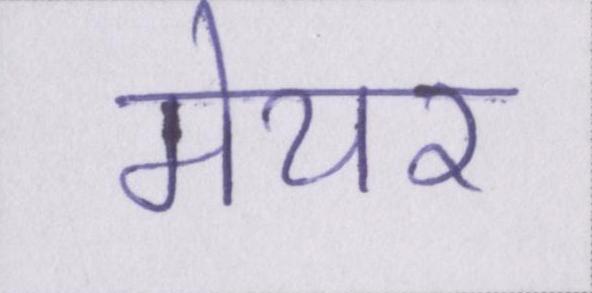 मेयर